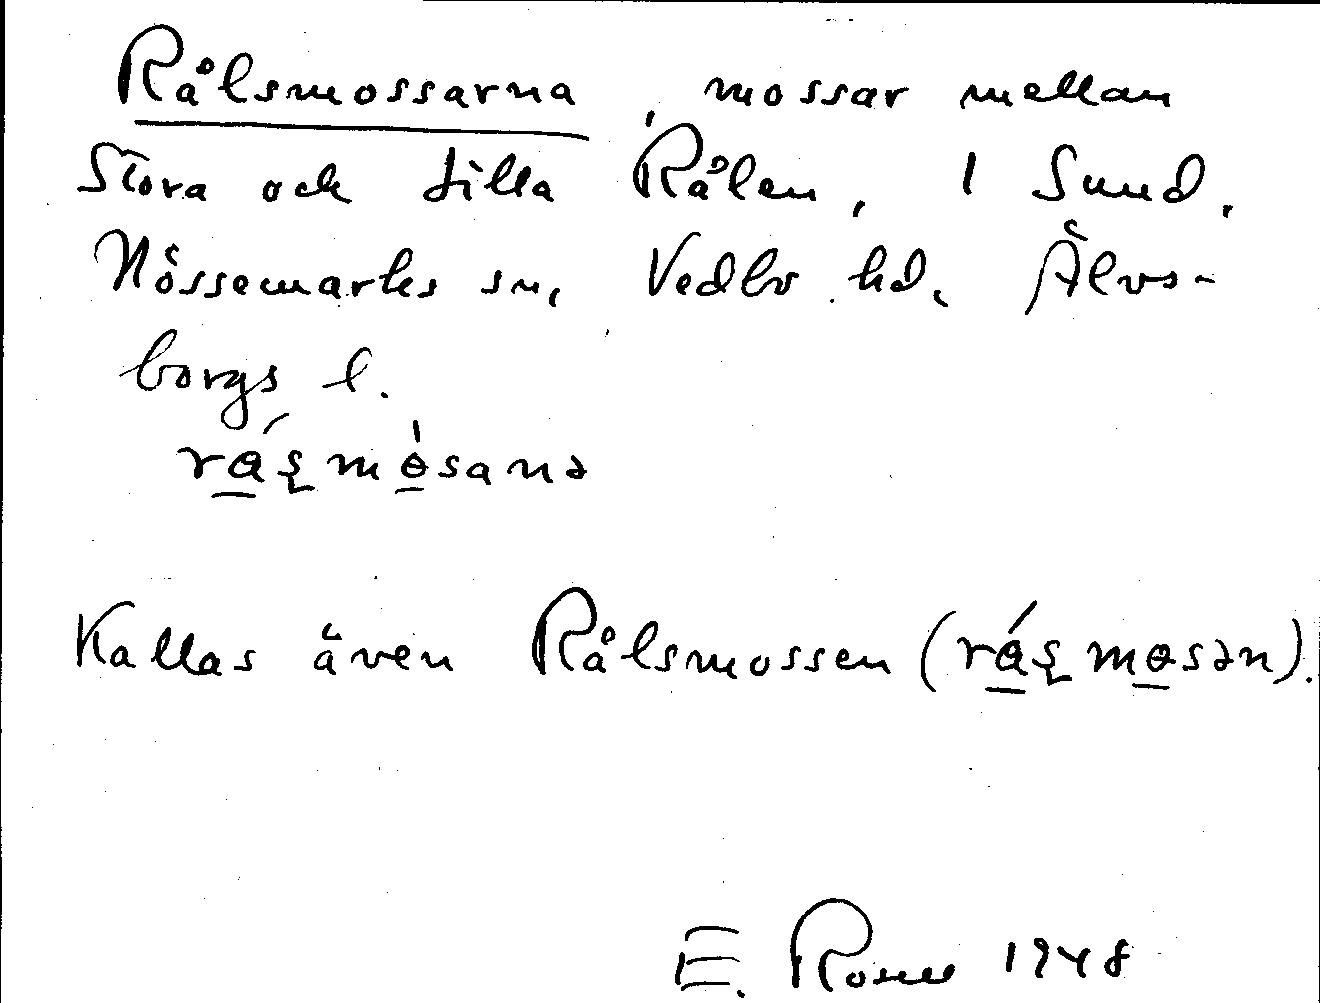 Rålsmossarna, mossar mellan
Stora och Lilla Rålen, 1 Sund,
Nössemarks sn, Vedbo hd, Älvs-
borgs l.
rá̱ʂmɵ̱̀sanə
Kallas även Rålsmossen (rá̱ʂmɵ̱sən).
E. 1948